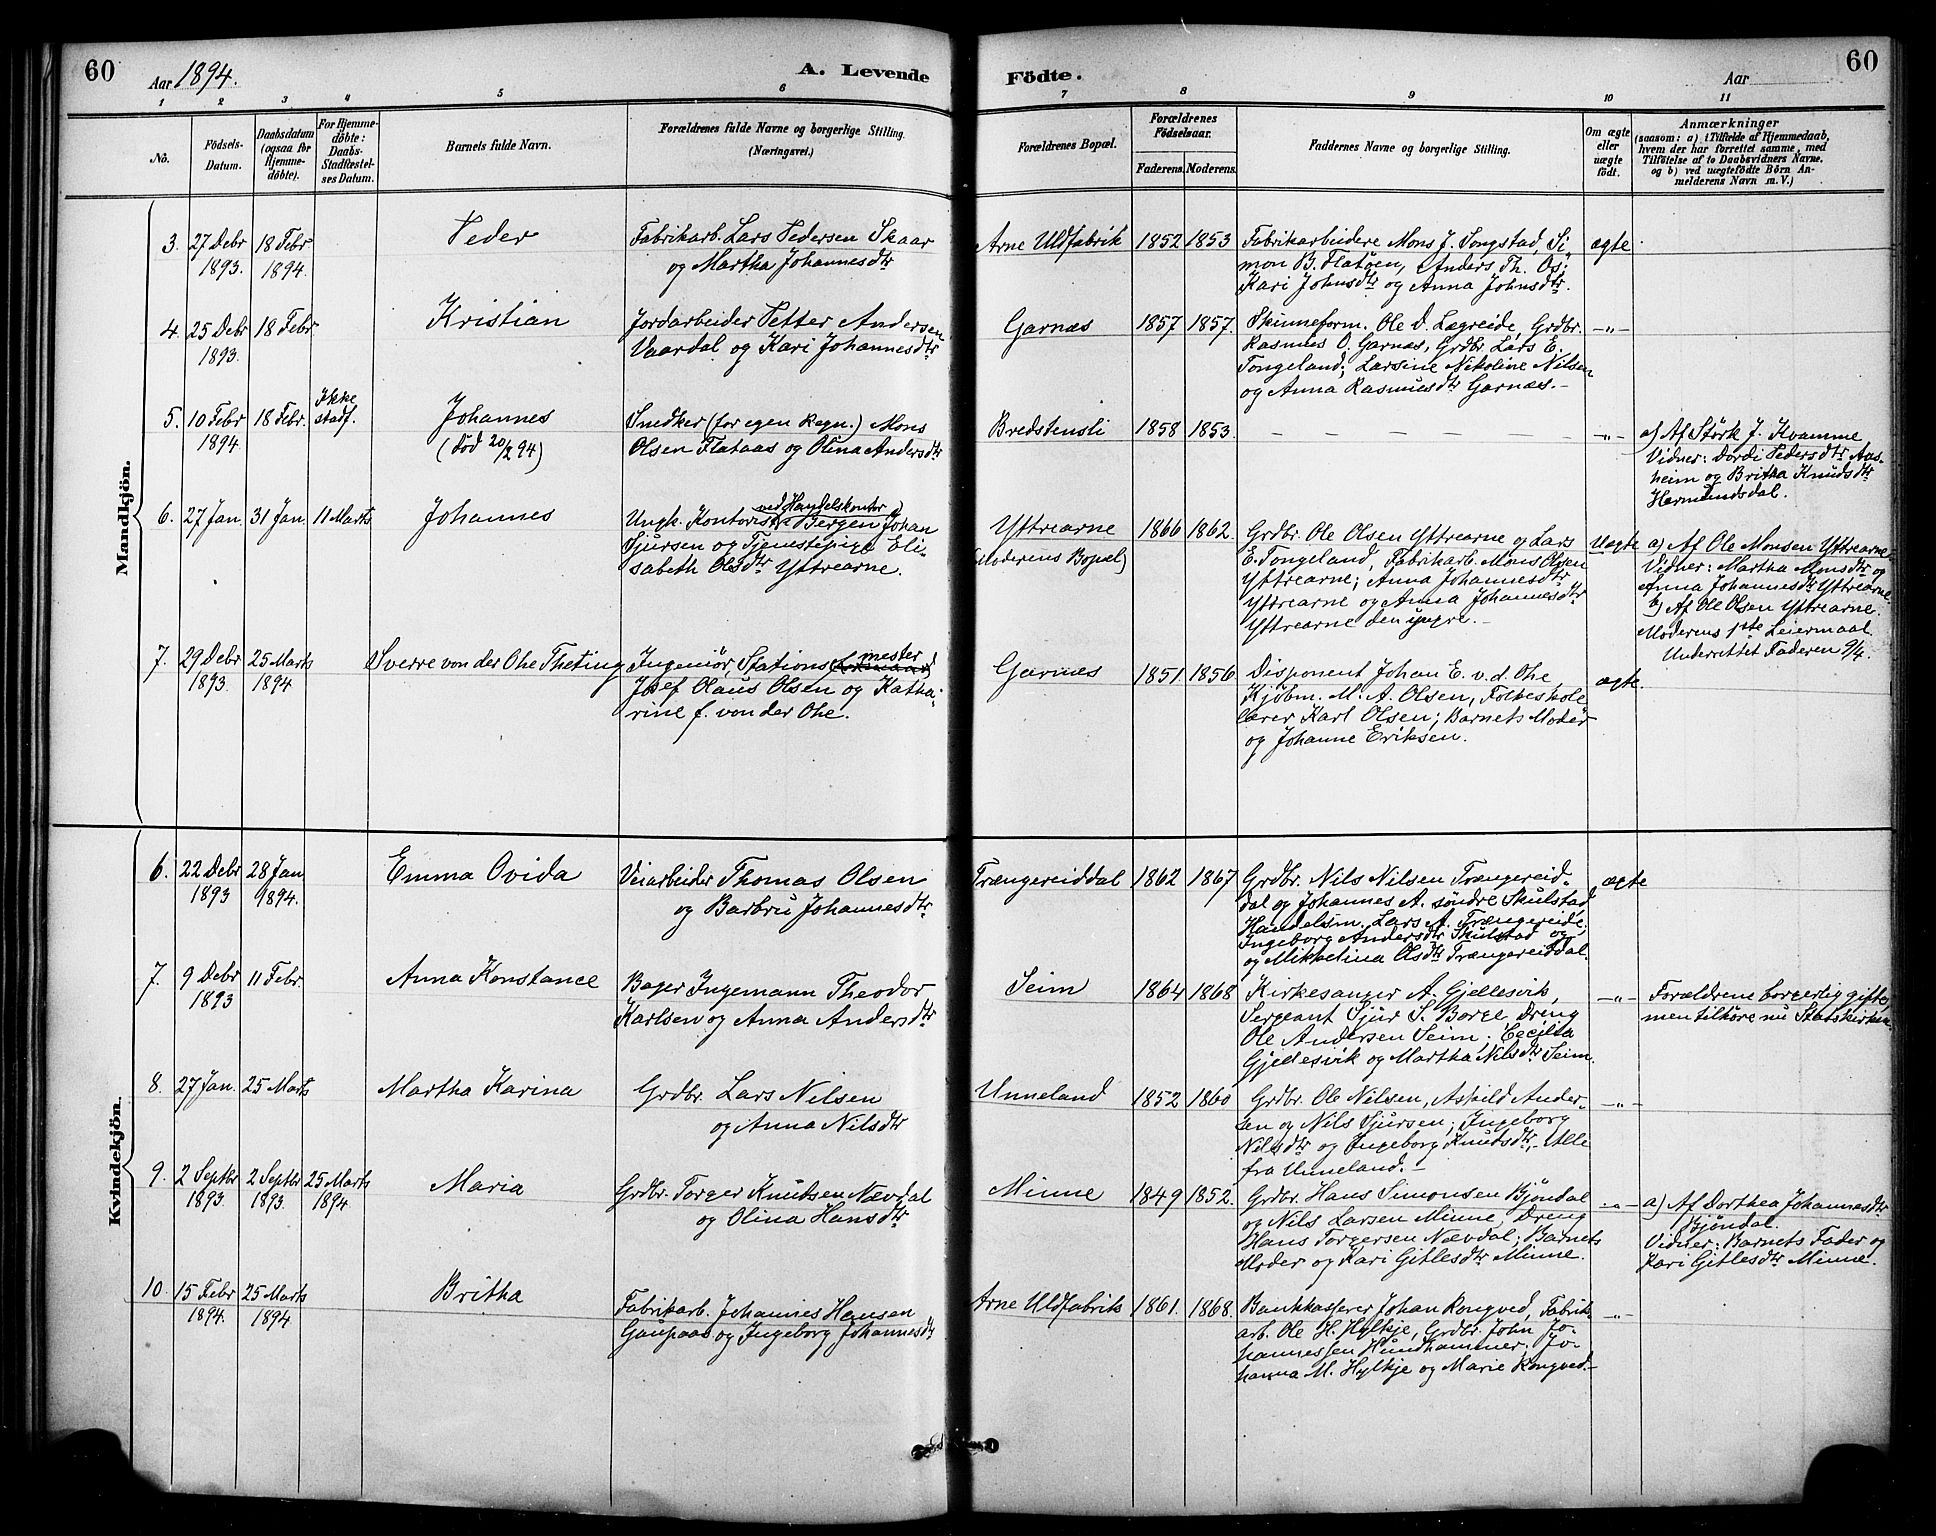 60
Aar 1894.
A. Levende
Födte.
Aar
60
1 2 3 4 5 6 7 8 9 10 11
No.
Födsels-
Datum.
Daabsdatum
(ogsaa for
Hjemme-
döbte).
For Hjemme-
döbte:
Daabs-
Stadfæstel-
ses Datum.
Barnets fulde Navn.
Forældrenes fulde Navne og borgerlige Stilling.
(Næringsvei.)
Forældrenes Bopæl.
Forældrenes
Födselsaar.
Faderens. Moderens.
Faddernes Navne og borgerlige Stilling.
Om ægte
eller
uægte
födt.
Anmærkninger
(saasom: a) i Tilfælde af Hjemmedaab,
hvem der har forrettet samme, med
Tilföielse af to Daabsvidners Navne.
og b) ved uægtefödte Börn An-
melderens Navn m. V.)
Mandkjön.
3. 27 Debr 1893. 18 Febr 1894.
Peder
Fabrikarb. Lars Pedersen Skaar
og Martha Johannesdtr
Arne Uldfabrik 1852 1853
Fabrikarbeidere Mons J. Songstad, Si-
mon B. Flatøen, Anders Th. Os;
Kari Johnsdtr og Anna Johnsdtr.
ægte
4. 25 Debr 1893. 18 Febr
Kristian
Jordarbeider Petter Andersen
Vaardal og Kari Johannesdtr
Garnæs 1857 1857.
Skinneform. Ole D. Lægreide, Grdbr.
Rasmus O. Garnæs, Grdbr. Lars E.
Tongeland; Larsine Nikoline Nilsen
og Anna Rasmusdtr Garnæs.-
-„-
5. 10 Febr 1894. 18 Febr. Ikke stadf.
Johannes
(død 20/2 94)
Snedker (for egen Regn.) Mons
Olsen Flataas og Olina Andersdtr
Bredstensli 1858 1853.
- - - - - - -
-„-
a) Af Størk J. Kvamme
Vidner: Dordi Pedersdtr Aus-
heim og Britha Knudsdtr
Hermundsdal.
6. 27 Jan. 31 Jan. 11 Marts
Johannes
ved Handelskontor
Ungk. Kontorist i Bergen Johan
Sjursen og Tjenestepige Eli-
sabeth Olsdtr Yttrearne.
Yttrearne
(Moderens Bopæl)
1866 1862.
Grdbr. Ole Olsen Yttrearne og Lars
E. Tongeland, Fabrikarb. Mons Olsen
Yttrearne; Anna Johannesdtr
Yttrearne og Anna Johannesdtr
Yttrearne den yngre.-
Uægte
a) Af Ole Monsen Yttrearne
Vidner: Martha Monsdtr og
Anna Johannesdtr Yttrearne.
b) Af Ole Olsen Yttrearne.
Moderens 1ste Leiermaal.
Underrettet Faderen 9/4.
7. 29 Debr 1893. 25 Marts 1894
Sverre von der Ohe Theting
Ingeniør, Stationsmester
Josef Olaus Olsen og Katha-
rine f. von der Ohe.
Garnes 1851 1856.
Disponent Johan E. v. d. Ohe,
Kjøbm. M. A. Olsen, Folkeskole
lærer Karl Olsen; Barnets Moder
og Johanne Eriksen.
ægte.
Kvindekjön.
6. 22 Debr 1893 28 Jan 1894.
Emma Ovida
Veiarbeider Thomas Olsen
og Barbru Johannesdtr
Trængereiddal 1862 1867
Grdbr. Nils Nilsen Trængereid-
dal og Johannes A. søndre Skulstad,
Handelsm. Lars A. Trængereide;
Ingeborg Andersdtr Skulstad og
og Mikkelina Olsdtr Trængereiddal.
ægte
7. 9 Debr 1893 11 Febr.
Anna Konstance
Bager Ingemann Theodor
Karlsen og Anna Andersdtr
Seim 1864 1868
Kirkesanger A. Gjellesvik,
Sergeant Sjur S. Borge, Dreng
Ole Andersen Seim; Cecilia
Gjellesvik og Martha Nilsdtr Seim.
-„-
Forældrene borgerlig gifte,
men tilhøre nu Statskirken.
8. 27 Jan. 25 Marts
Martha Karina
Grdbr. Lars Nilsen
og Anna Nilsdtr
Unneland 1852 1860
Grdbr. Ole Nilsen, Askild Ander-
sen og Nils Sjursen; Ingeborg
Nilsdtr og Ingeborg Knudsdtr, Alle
fra Unneland.-
-„-
9. 2 Septbr 1893. 2 Septbr 1893. 25 Marts 1894
Maria
Grdbr. Torger Knudsen Nævdal
og Olina Hansdtr
Minne 1849 1852.
Grdbr. Hans Simonsen Bjøndal
og Nils Larsen Minne, Dreng
Hans Torgersen Nævdal; Barnets
Moder og Kari Gitlesdtr Minne.
-„-
a) Af Dorthea Johannesdtr
Bjøndal.
Vidner: Barnets Fader og
Kari Gitlesdtr Minne.
10. 15 Febr 1894. 25 Marts 1894
Britha
Fabrikarb. Johannes Hansen
Gaupaas og Ingeborg Johannesdtr
Arne Uldfabrik 1861. 1868.
Bankkasserer Johan Rongved, Fabrik-
arb. Ole H. Hylkje, Grdbr. John Jo-
hannessen Hundhammer; Jo-
hanna M. Hylkje og Marie Rongved.-
-„-